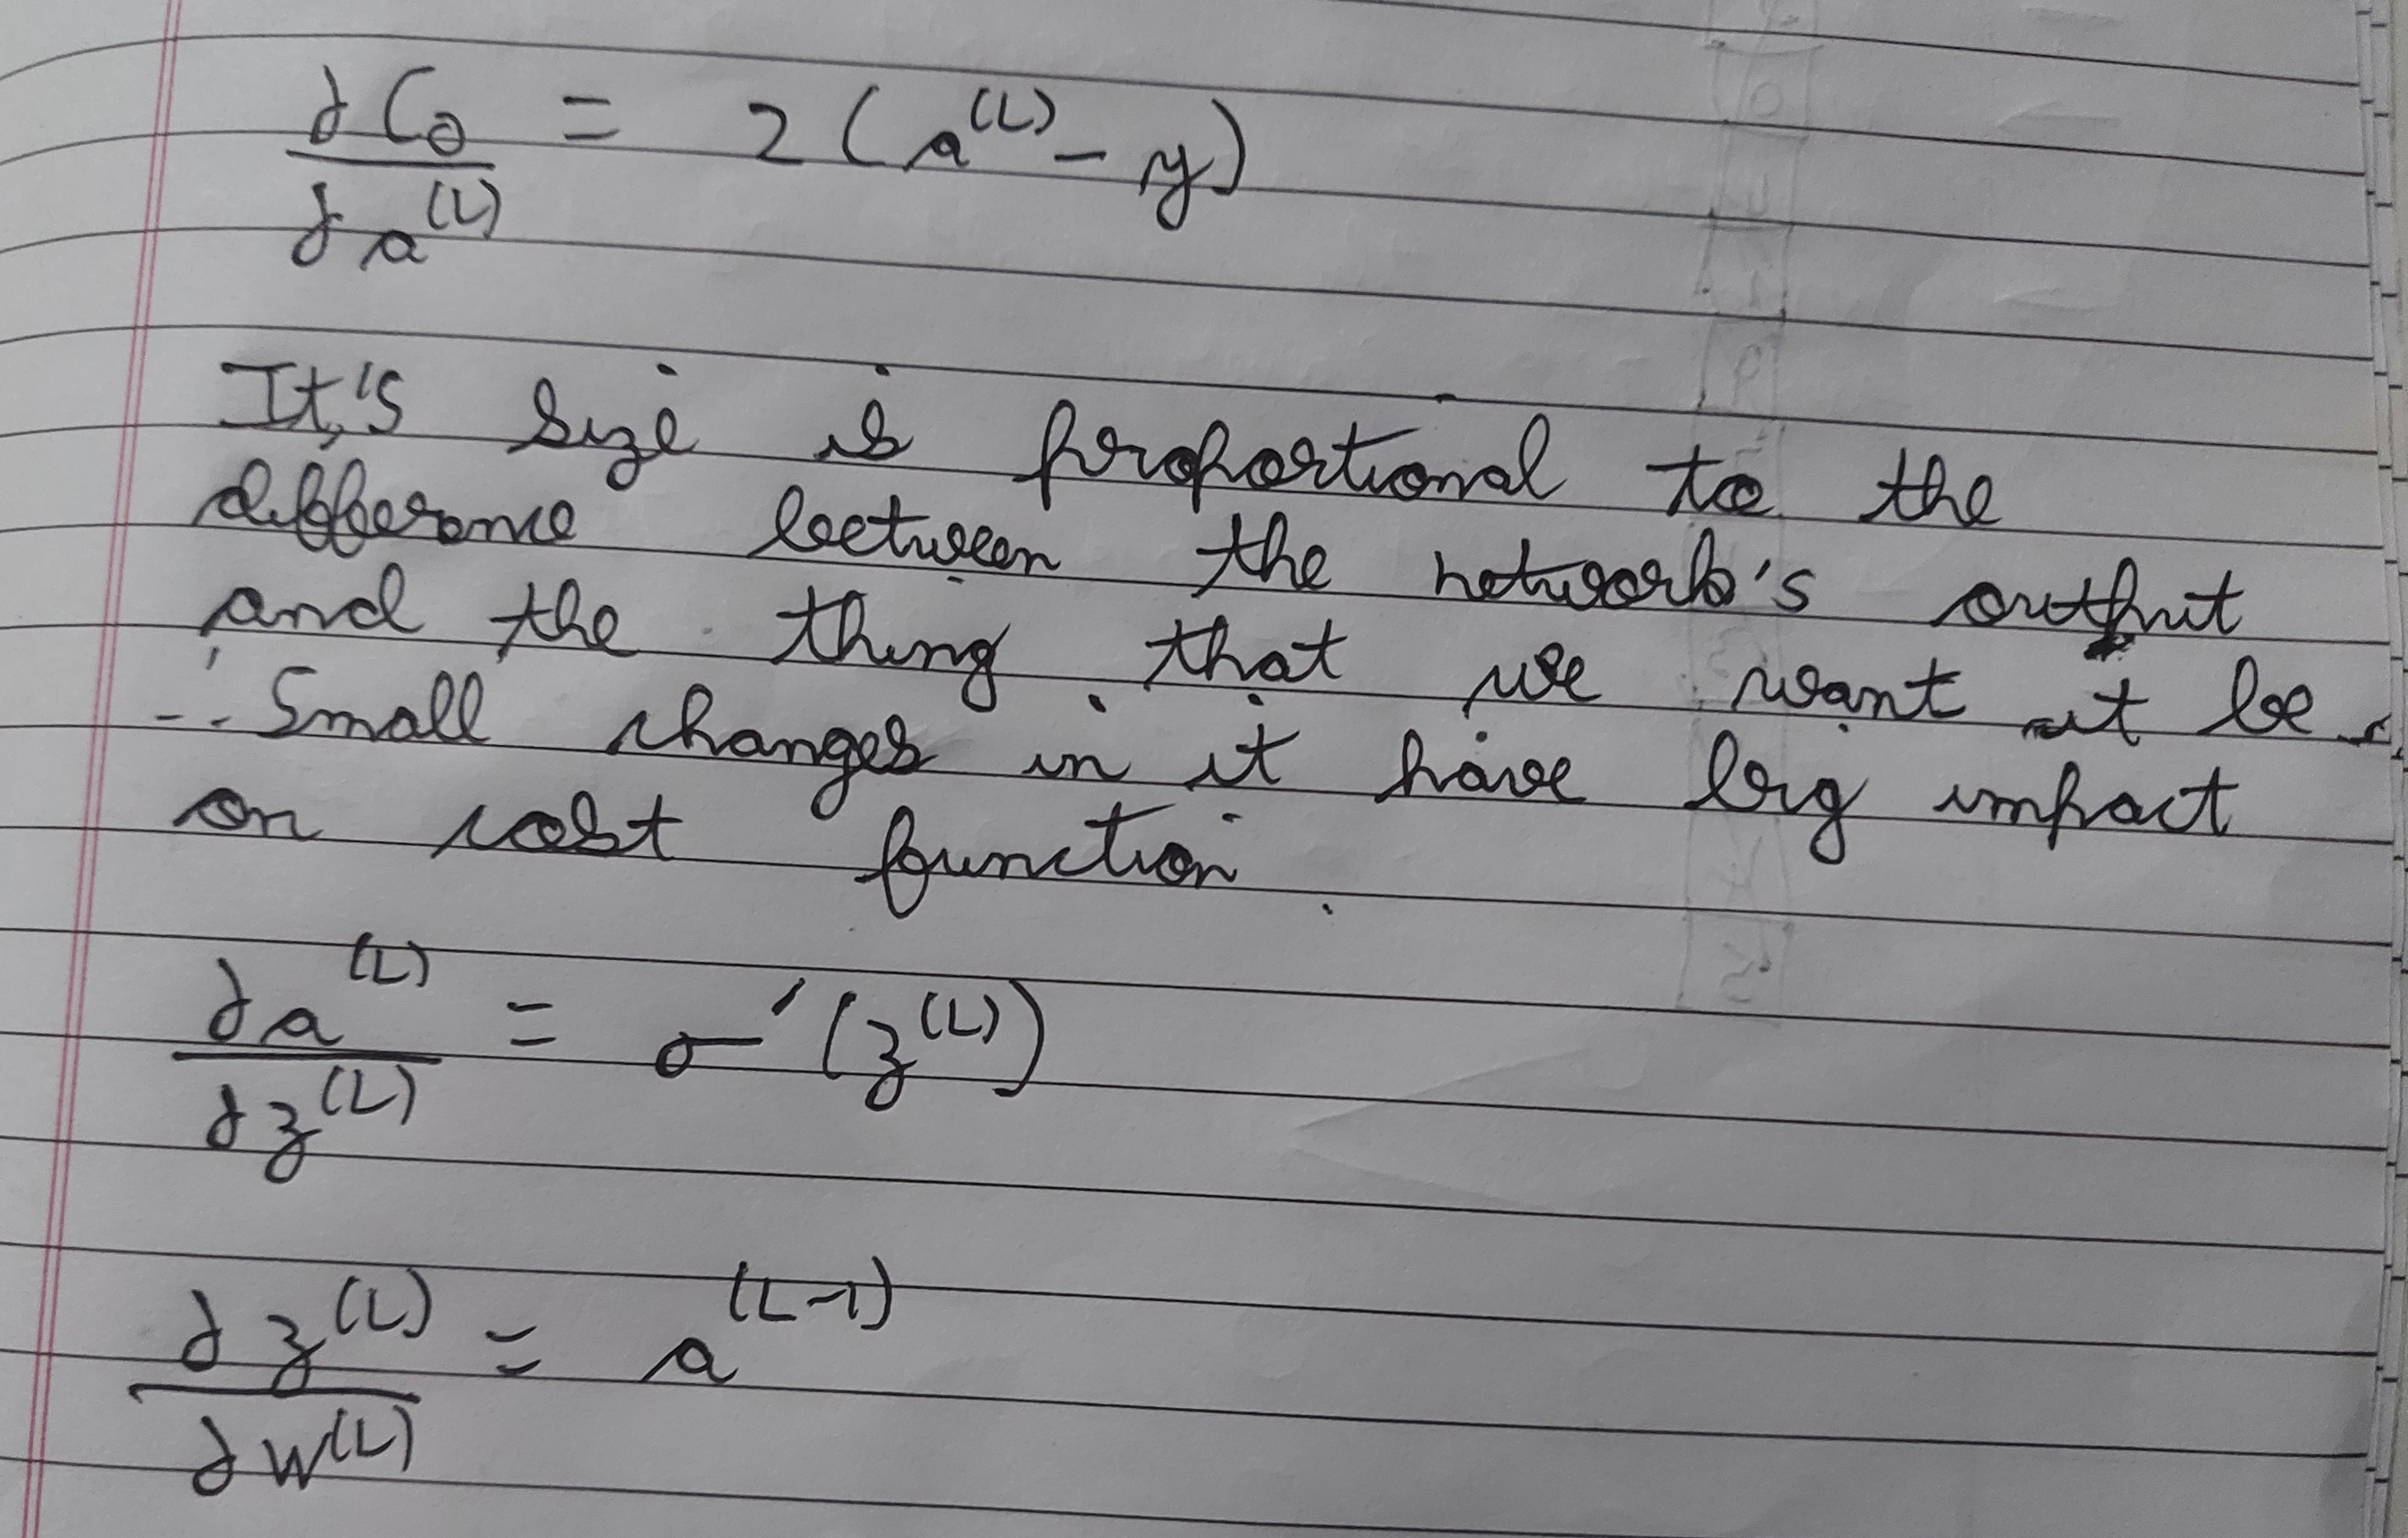 ∂C₀/∂a⁽ᴸ⁾ = 2(a⁽ᴸ⁾ - y)
It's size is proportional to the
difference between the network's output
and the thing that we want it be.
∴ Small changes in it have big impact
on cost function.
∂a⁽ᴸ⁾/∂z⁽ᴸ⁾ = σ'(z⁽ᴸ⁾)
∂z⁽ᴸ⁾/∂w⁽ᴸ⁾ = a⁽ᴸ⁻¹⁾